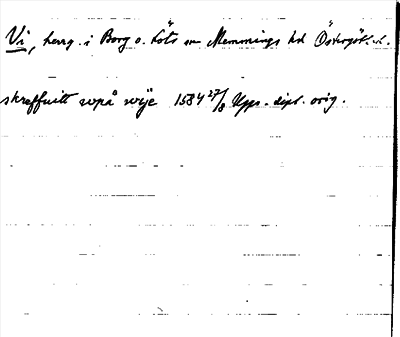 Vi, herrg. i Borg o. Löts sn Memmings hd Östergötl. l.
skreffuitt wpå wije 1584 27/8 Upps. dipl. orig.